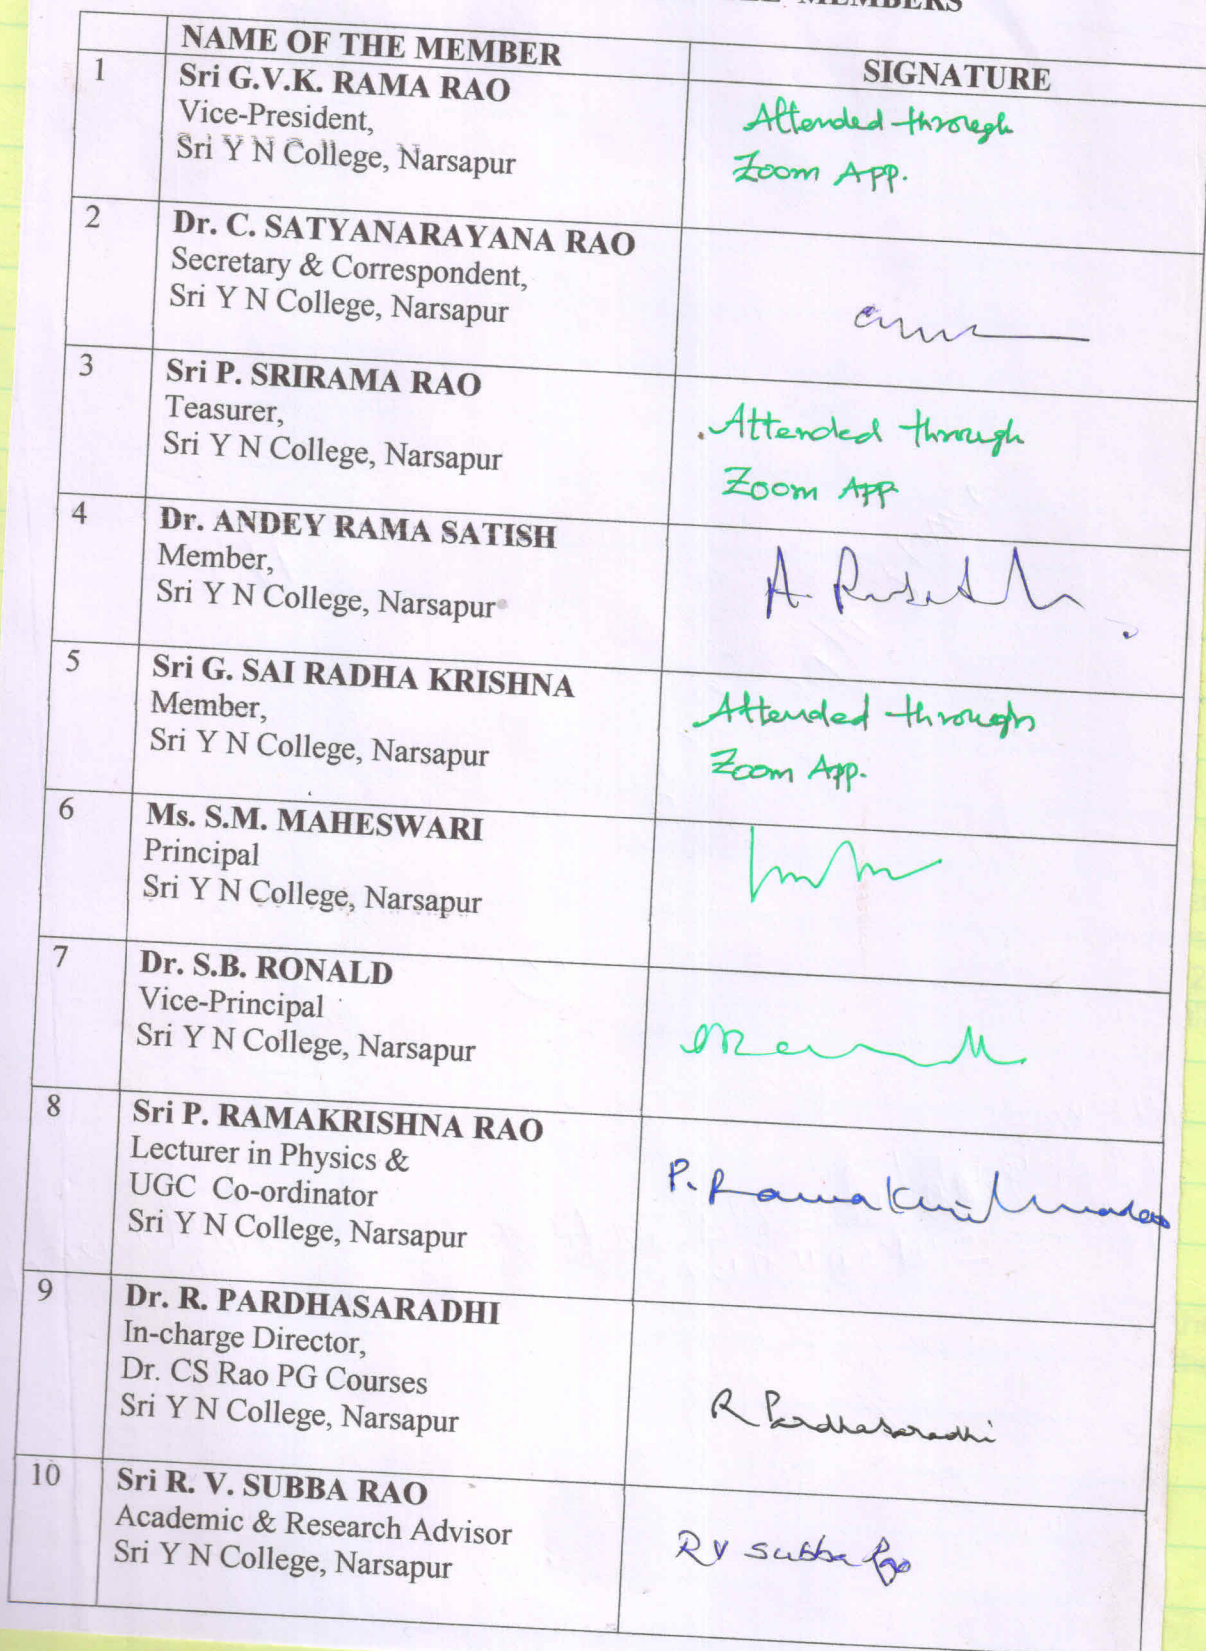 MEMBERS
NAME OF THE MEMBER
SIGNATURE
1
Sri G.V.K. RAMA RAO
Vice-President,
Sri Y N College, Narsapur
Attended through
Zoom App.
2
Dr. C. SATYANARAYANA RAO
Secretary & Correspondent,
Sri Y N College, Narsapur
3
Sri P. SRIRAMA RAO
Teasurer,
Sri Y N College, Narsapur
Attended through
Zoom App
4
Dr. ANDEY RAMA SATISH
Member,
Sri Y N College, Narsapur
A.
5
Sri G. SAI RADHA KRISHNA
Member,
Sri Y N College, Narsapur
Attended through
Zoom App.
6
Ms. S.M. MAHESWARI
Principal
Sri Y N College, Narsapur
7
Dr. S.B. RONALD
Vice-Principal
Sri Y N College, Narsapur
8
Sri P. RAMAKRISHNA RAO
Lecturer in Physics &
UGC Co-ordinator
Sri Y N College, Narsapur
P. Ramakrishnarao
9
Dr. R. PARDHASARADHI
In-charge Director,
Dr. CS Rao PG Courses
Sri Y N College, Narsapur
R Pardhasaradhi
10
Sri R. V. SUBBA RAO
Academic & Research Advisor
Sri Y N College, Narsapur
RV Subba Rao